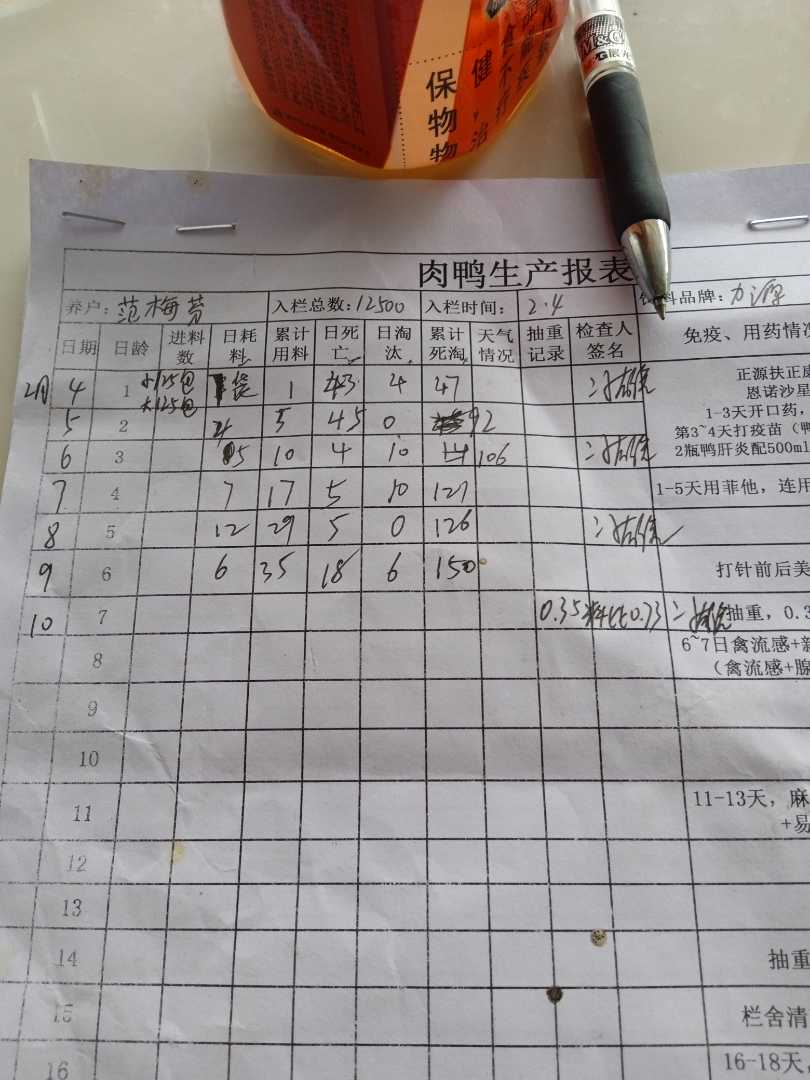 保 健,
物 治
物
M&G
肉鸭生产报表
养户: 范梅芳 入栏总数: 12500 入栏时间: 2.4 饲料品牌: 力源
日期 日龄 进料数 日耗料 累计用料 日死亡 日淘汰 累计死淘 天气情况 抽重记录 检查人签名 免疫、用药情况
2月 4 1 小125包 大125包 1袋 1 43 4 47 正源扶正康
恩诺沙星
5 2 4 5 45 0 92 1-3天开口药,
第3~4天打疫苗(鸭
6 3 5 10 4 10 106 2瓶鸭肝炎配500ml
7 4 7 17 5 10 121 1-5天用菲他,连用
8 5 12 29 5 0 126
9 6 6 35 18 6 150 打针前后美
10 7 0.35 料比0.73 抽重,0.3
8 6~7日禽流感+新
(禽流感+腺
9
10
11 11-13天,麻
+易
12
13
14 抽重
15 栏舍清
16 16-18天,